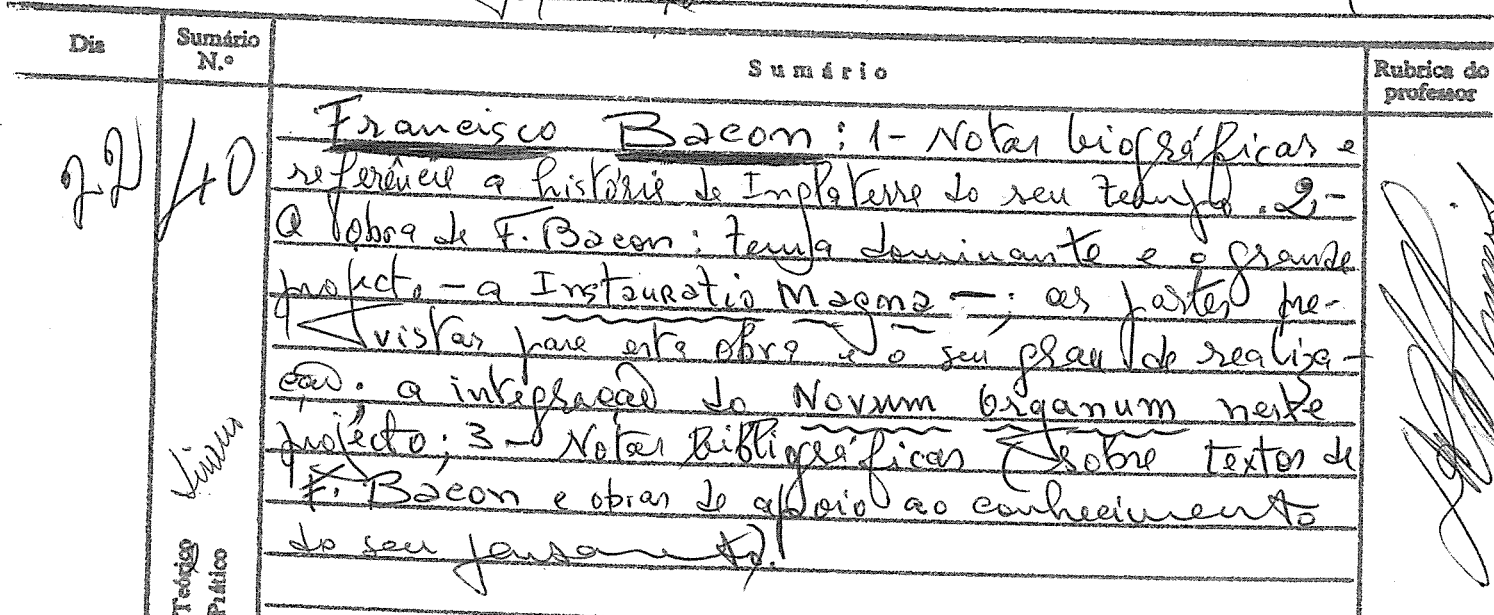 Dia
Sumário N.º
Sumário
Rubrica do professor
22
40
Francisco Bacon : 1- Notas biográficas e
referência a história de Inglaterra do seu tempo. 2-
A obra de F. Bacon: tema dominante e o grande
projecto - a Instauratio Magna -; as partes pre-
vistas para esta obra e o seu grau de realiza-
ção. a integração do Novum Organum neste
projecto; 3- Notas Bibliográficas sobre textos de
F. Bacon e obras de apoio ao conhecimento
do seu pensamento.
Teórico
Prático